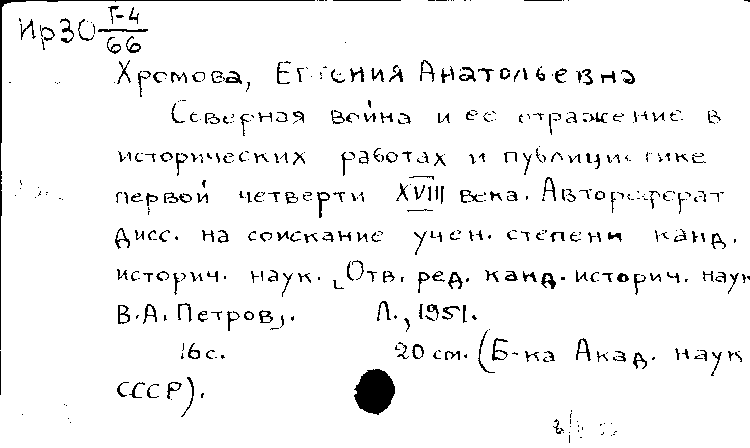 Ир30 Г-4/66
Хромова, Евгения Анатольевна
Северная война и ее отражение в
исторических работах и публицистике
первой четверти XVIII века. Автореферат
дисс. на соискание учен. степени канд.
историч. наук. [Отв. ред. канд. историч. наук
В.А. Петров]. Л., 1951.
16 с. 20 см. (Б-ка Акад. наук
СССР).